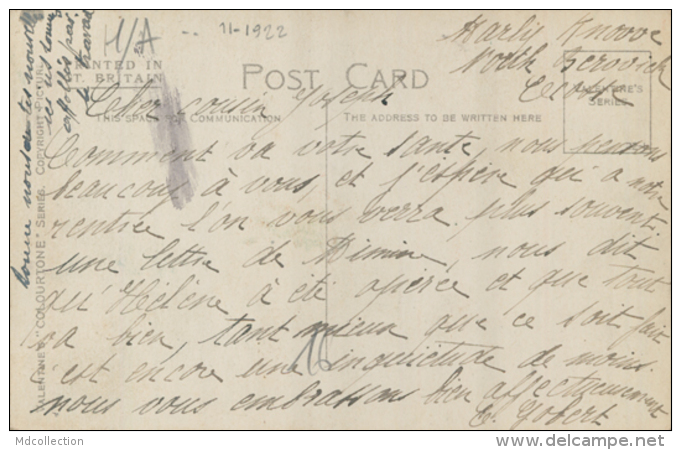 11-1922
Harly Knowe
North Berwick
Ecosse
PRINTED IN
GT. BRITAIN
POST CARD
VALENTINE'S
SERIES
THIS SPACE COMMUNICATION
THE ADDRESS TO BE WRITTEN HERE
Cher cousin Joseph
Comment va votre santé, nous pensons
beaucoup à vous, et j'espère qu'a notre
rentrée l'on vous verra plus souvent.
une lettre de Mimine, nous dit
qu'Hélène à été opérée et que tout
va bien, tant mieux que ce soit fait
c'est encore une inquiétude de moins.
nous vous embrassons bien affectueusement
C. Yobert
16
donne nous de tes nouvelles
VALENTINE'S "COLOURTONE" SERIES. COPYRIGHT PICTURE
Mdcollection
www.delcampe.net